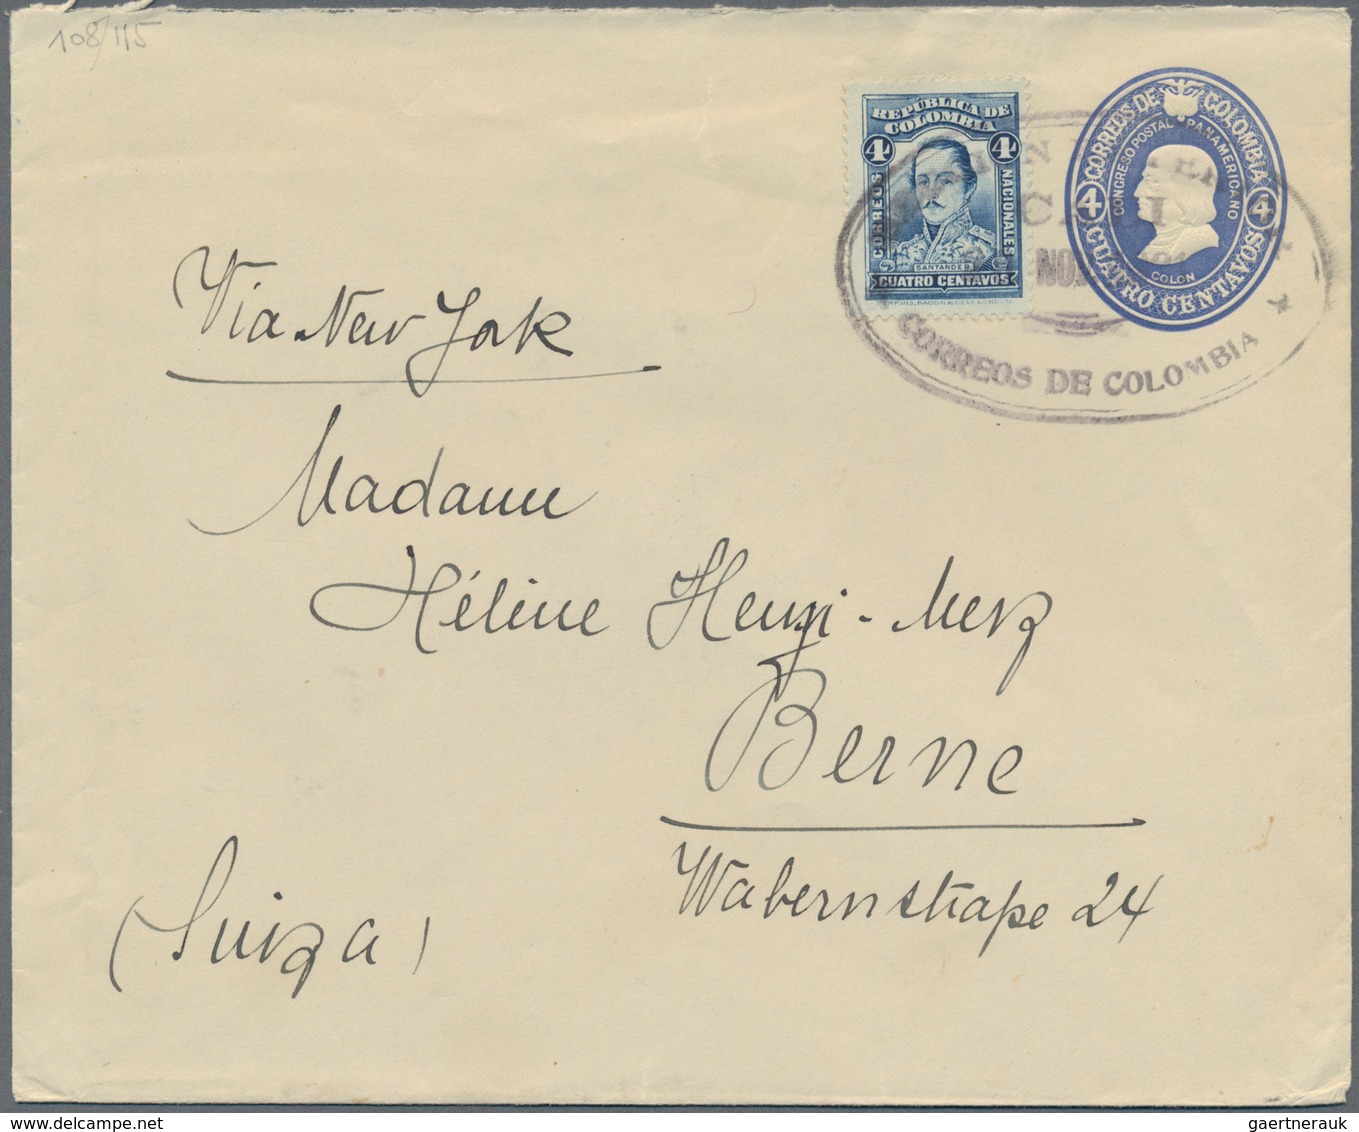 108/115
REPÚBLICA DE
COLOMBIA
4 4
CORREOS
NACIONALES
SANTANDER
CUATRO CENTAVOS
CORREOS DE COLOMBIA
CONGRESO POSTAL PANAMERICANO
4 4
COLON
CUATRO CENTAVOS
CALI
NOV
CORREOS DE COLOMBIA
Via New York
Madame
Hélène Henzi-Merz
Berne
Wabernstraße 24
(Suiza)
gaertnerauk